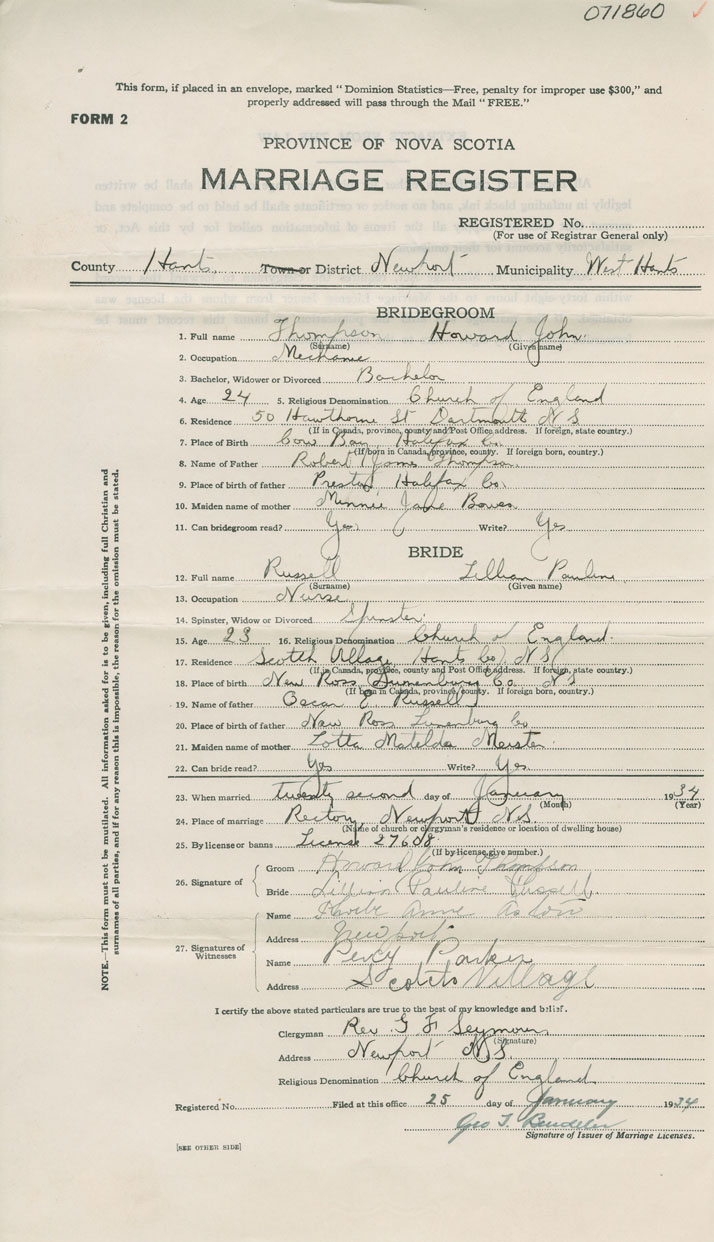 071860
This form, if placed in an envelope, marked "Dominion Statistics—Free, penalty for improper use $300," and
properly addressed will pass through the Mail "FREE."
FORM 2
PROVINCE OF NOVA SCOTIA
MARRIAGE REGISTER
REGISTERED No.
(For use of Registrar General only)
County Hants Town or District Newport Municipality West Hants
BRIDEGROOM
1. Full name Thompson Howard John
(Surname) (Given name)
2. Occupation Mechanic
3. Bachelor, Widower or Divorced Bachelor
4. Age 24 5. Religious Denomination Church of England
6. Residence 50 Hawthorne St Dartmouth N S
(If in Canada, province, county and Post Office address. If foreign, state country.)
7. Place of Birth Cow Bay, Halifax Co.
(If born in Canada, province, county. If foreign born, country.)
8. Name of Father Robert James Thompson
9. Place of birth of father Preston Halifax Co.
10. Maiden name of mother Minnie Jane Bowes
11. Can bridegroom read? Yes Write? Yes
BRIDE
12. Full name Russell Lillian Pauline
(Surname) (Given name)
13. Occupation Nurse
14. Spinster, Widow or Divorced Spinster
15. Age 23 16. Religious Denomination Church of England
17. Residence Scotch Village Hants Co. N S
(If in Canada, province, county and Post Office address. If foreign, state country.)
18. Place of birth New Ross Lunenburg Co. N S
(If born in Canada, province, county. If foreign born, country.)
19. Name of father Oscar E Russell
20. Place of birth of father New Ross Lunenburg Co
21. Maiden name of mother Lotta Matilda Meister
22. Can bride read? Yes Write? Yes.
23. When married twenty second day of January 1934
(Month) (Year)
24. Place of marriage Rectory, Newport N.S.
(Name of church or clergyman's residence or location of dwelling house)
25. By license or banns License 27608
(If by license, give number.)
26. Signature of
Groom Howard John Thompson
Bride Lillian Pauline Russell.
27. Signatures of Witnesses
Name Anne
Address Newport
Name Percy Parker
Address Scotts Village
I certify the above stated particulars are true to the best of my knowledge and belief.
Clergyman Rev G F Seymour
(Signature)
Address Newport N.S.
Religious Denomination Church of England
Registered No. Filed at this office 25 day of January 1934
Geo T.
Signature of Issuer of Marriage Licenses.
[SEE OTHER SIDE]
NOTE.—This form must not be mutilated. All information asked for is to be given, including full Christian and
surnames of all parties, and if for any reason this is impossible, the reason for the omission must be stated.